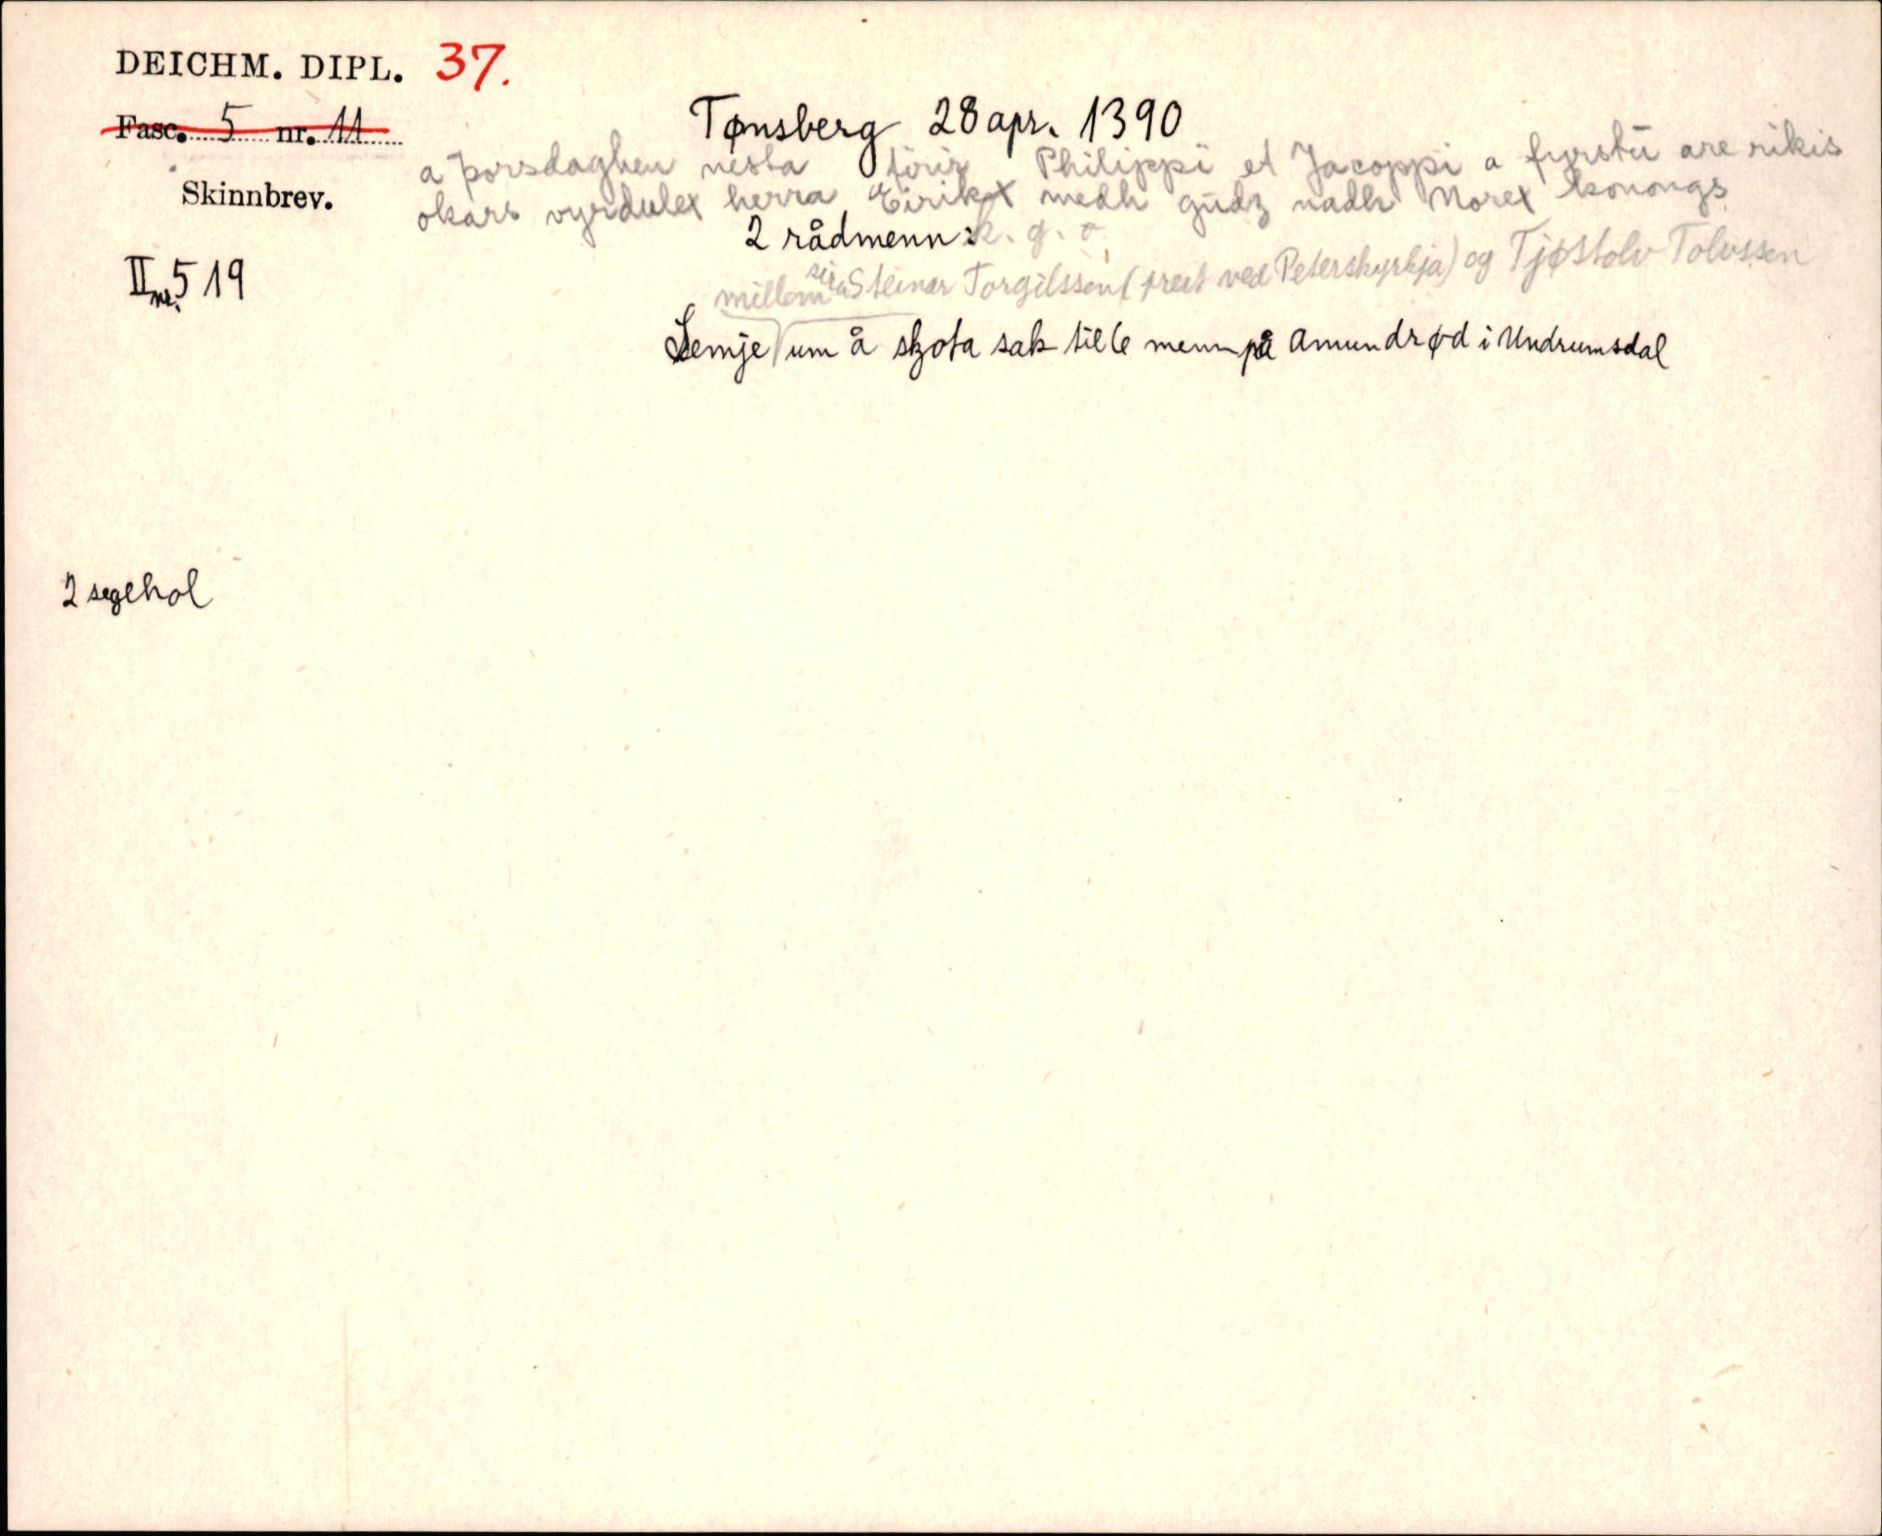 DEICHM. DIPL. 37.
Fasc. 5 nr. 11
Skinnbrev.
II nr. 519
Tønsberg 28 apr. 1390
a þorsdaghen nesta firir Philippi et Jacoppi a fyrstu are rikis
okars vyrdulex herra Eirikx medh gudz nadh Norex konongs
2 rådmenn: k. g. o.
millom sira Steinar Torgilsson (prest ved Peterskyrkja) og Tjøstolv Tolvssen
Semje um å skota sak til 6 menn på Amundrød i Undrumsdal
2 seglhol